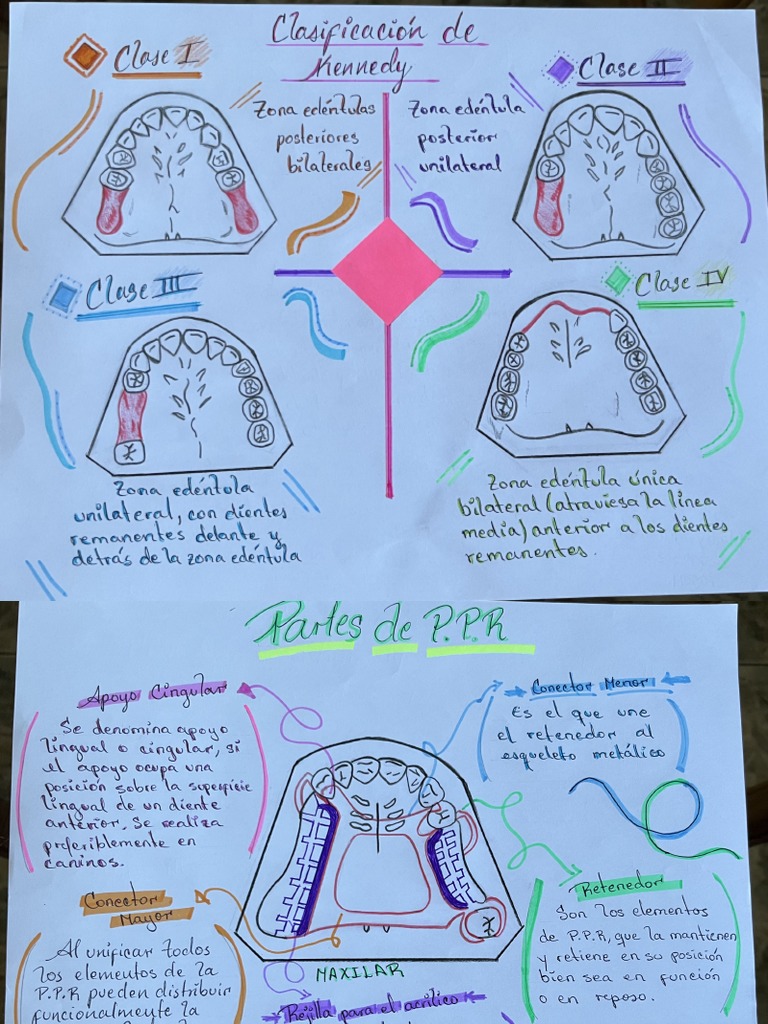 Clasificación de
Kennedy
Clase I
Zona edéntulas
posteriores
bilaterales
Clase II
Zona edéntula
posterior
unilateral
Clase III
Zona edéntula
unilateral, con dientes
remanentes delante y
detrás de la zona edéntula
Clase IV
Zona edéntula única
bilateral (atraviesa la linea
media) anterior a los dientes
remanentes.
Partes de P.P.R
Apoyo Cingular
Se denomina apoyo
lingual o cingular, si
el apoyo ocupa una
posición sobre la superficie
lingual de un diente
anterior. Se realiza
preferiblemente en
caninos.
Conector Menor
Es el que une
el retenedor al
esqueleto metálico
Conector
Mayor
Al unificar todos
los elementos de la
P.P.R pueden distribuir
funcionalmente la
Retenedor
Son los elementos
de P.P.R, que la mantienen
y retiene en su posición
bien sea en función
o en reposo.
MAXILAR
Rejilla para el acrílico